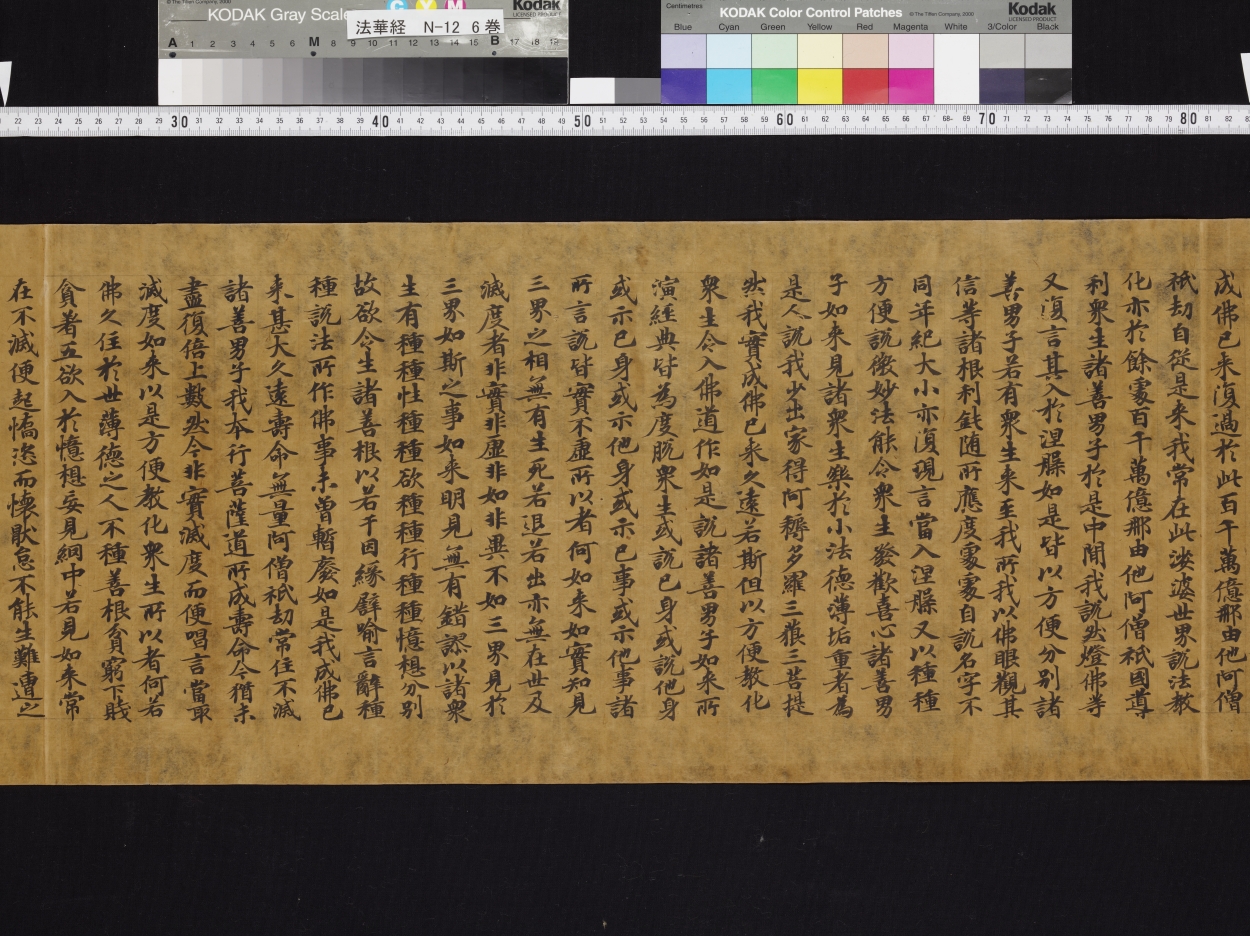 © The Tiffen Company, 2000
KODAK Gray Scale
C Y M
Kodak
LICENSED PRODUCT
法華経 N-12 6巻
A 1 2 3 4 5 6 M 8 9 10 11 12 13 14 15 B 17 18 19
Centimetres
KODAK Color Control Patches
© The Tiffen Company, 2000
Kodak
LICENSED PRODUCT
Blue Cyan Green Yellow Red Magenta White 3/Color Black
22 23 24 25 26 27 28 29 30 31 32 33 34 35 36 37 38 39 40 41 42 43 44 45 46 47 48 49 50 51 52 53 54 55 56 57 58 59 60 61 62 63 64 65 66 67 68 69 70 71 72 73 74 75 76 77 78 79 80 81 82
成佛已来復過於此百千萬億那由他阿僧
祇劫自従是来我常在此娑婆世界説法教
化亦於餘處百千萬億那由他阿僧祇國導
利衆生諸善男子於是中間我説然燈佛等
又復言其入於涅槃如是皆以方便分別諸
善男子若有衆生来至我所我以佛眼觀其
信等諸根利鈍随所應度處處自説名字不
同年紀大小亦復現言當入涅槃又以種種
方便説微妙法能令衆生發歡喜心諸善男
子如来見諸衆生樂於小法德薄垢重者為
是人説我少出家得阿耨多羅三藐三菩提
然我實成佛已来久遠若斯但以方便教化
衆生令入佛道作如是説諸善男子如来所
演經典皆為度脱衆生或説已身或説他身
或示已身或示他身或示已事或示他事諸
所言説皆實不虚所以者何如来如實知見
三界之相無有生死若退若出亦無在世及
滅度者非實非虚非如非異不如三界見於
三界如斯之事如来明見無有錯謬以諸衆
生有種種性種種欲種種行種種憶想分別
故欲令生諸善根以若干因縁譬喻言辭種
種説法所作佛事未曽暫廢如是我成佛已
来甚大久遠壽命無量阿僧祇劫常住不滅
諸善男子我本行菩薩道所成壽命今猶未
盡復倍上數然今非實滅度而便唱言當取
滅度如来以是方便教化衆生所以者何若
佛久住於世薄德之人不種善根貧窮下賎
貪著五欲入於憶想妄見網中若見如来常
在不滅便起憍恣而懷猒怠不能生難遭之